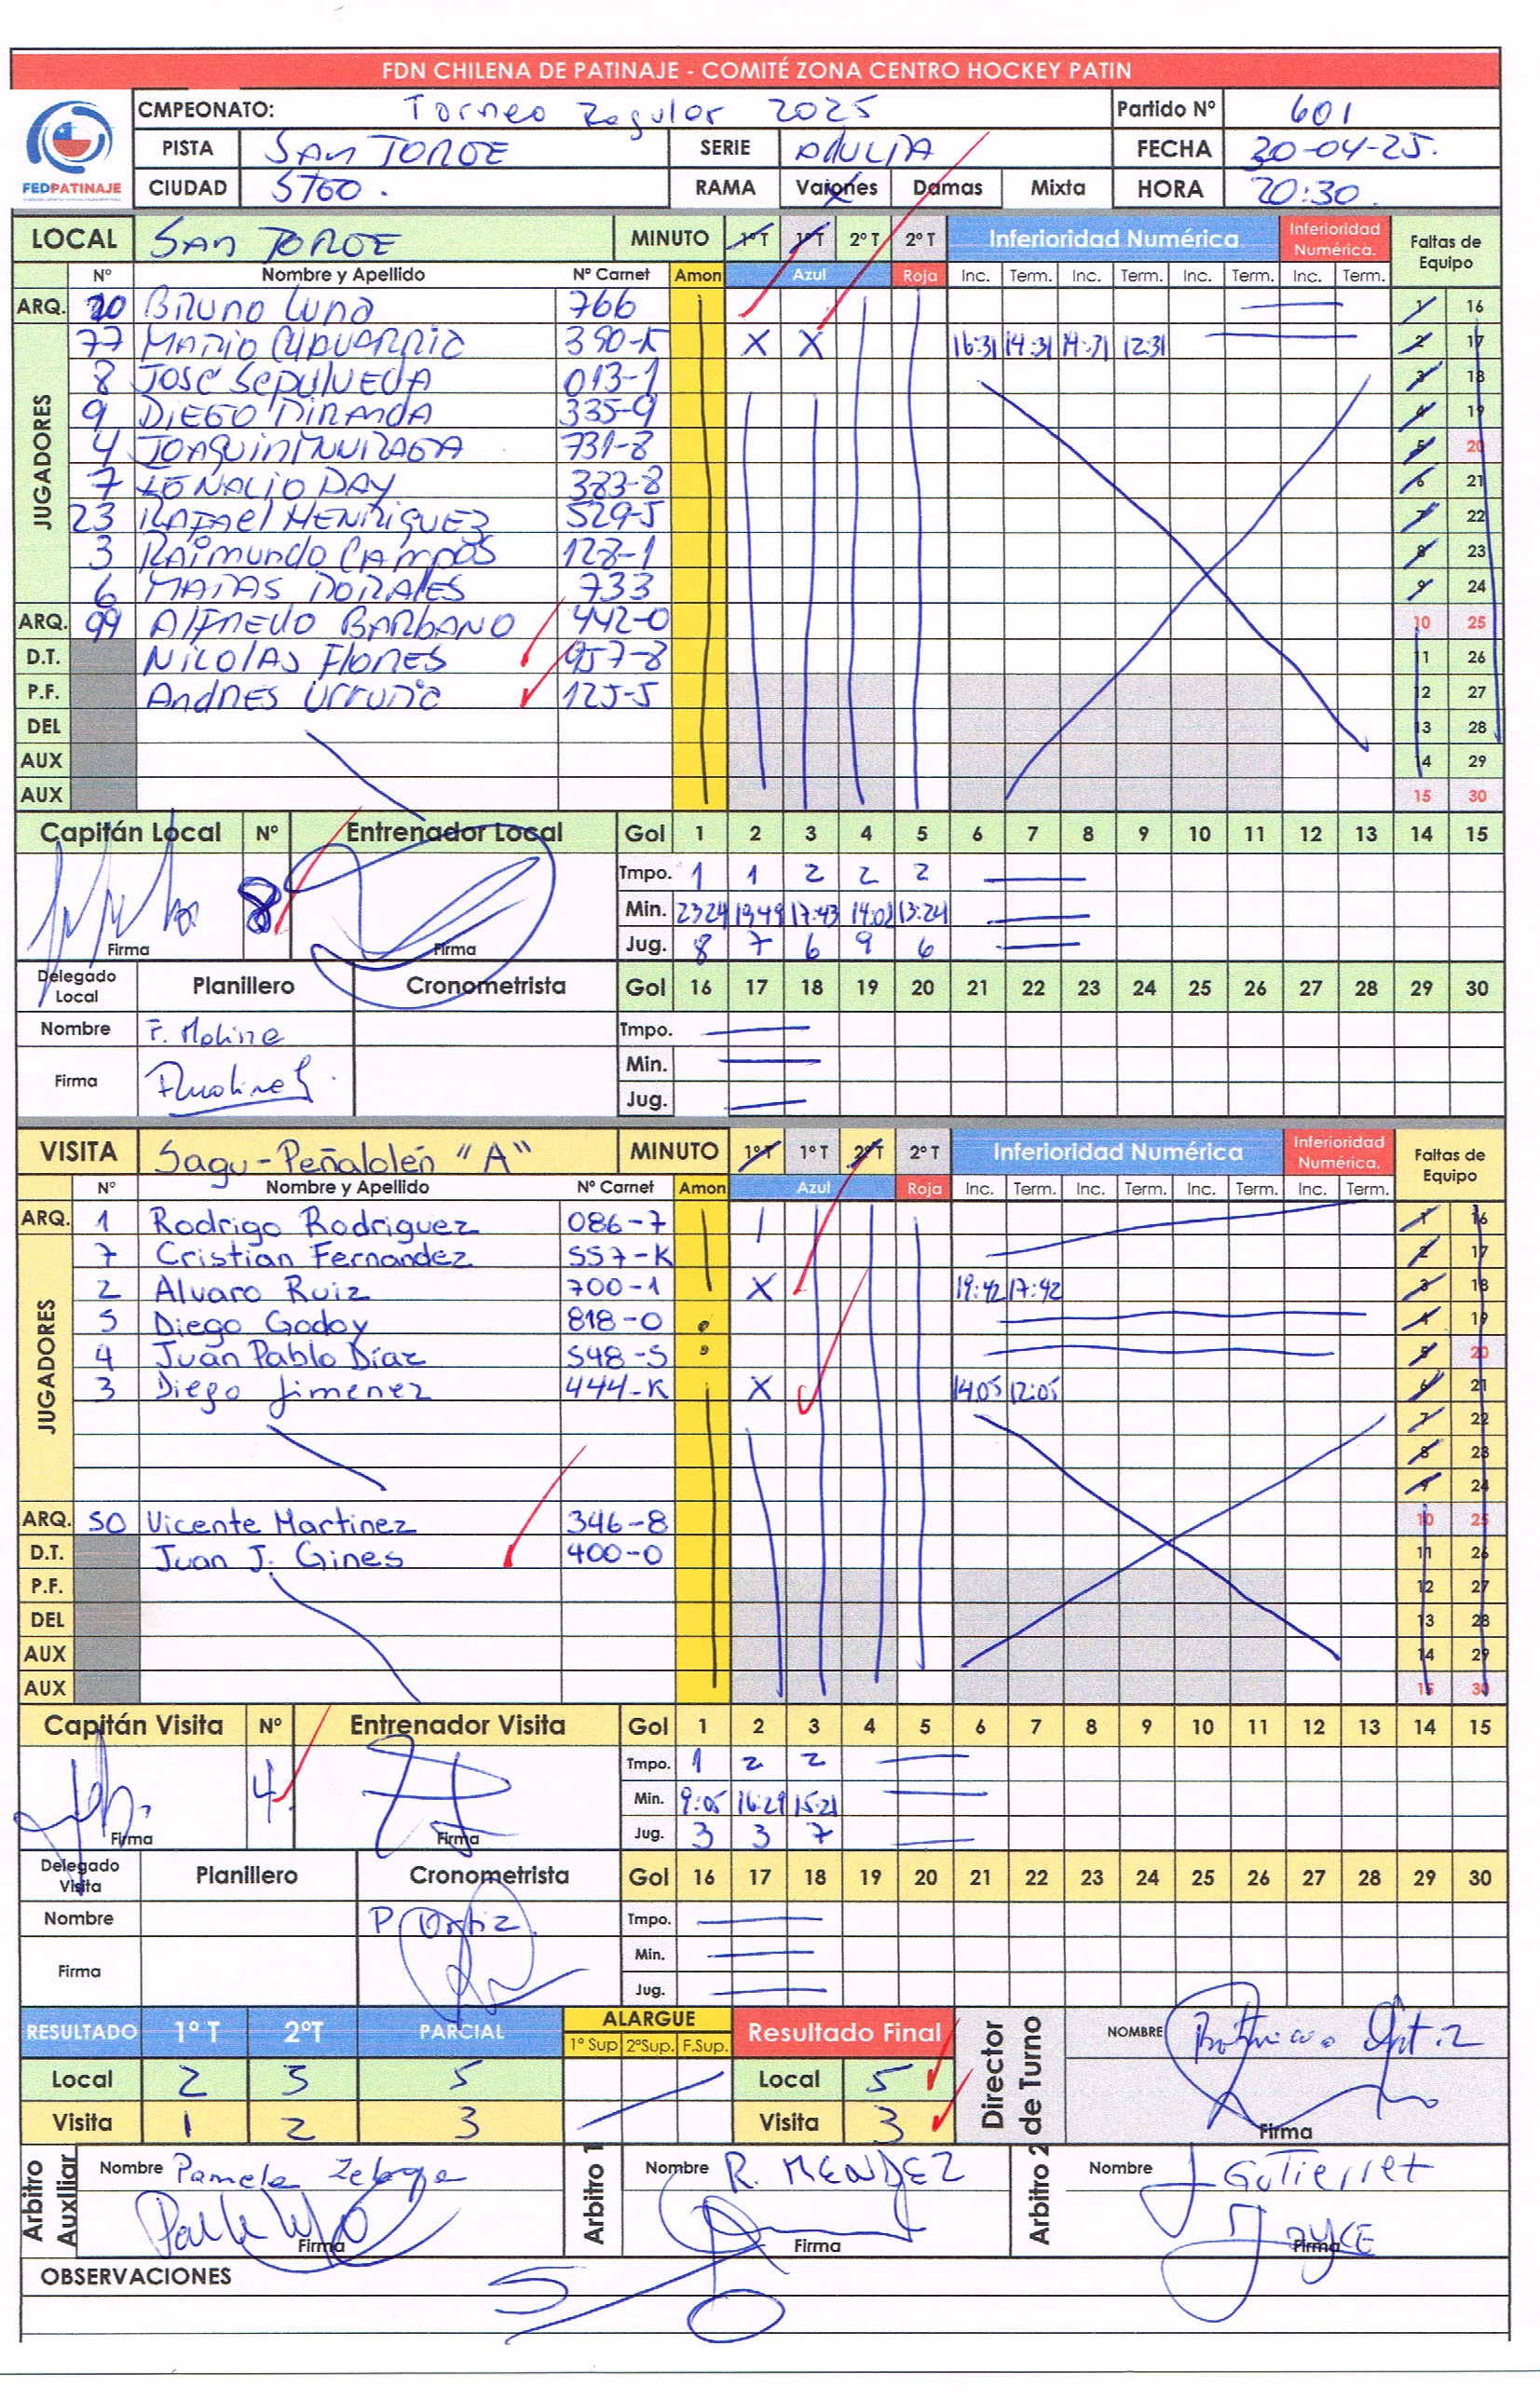 FDN CHILENA DE PATINAJE - COMITÉ ZONA CENTRO HOCKEY PATIN
FEDPATINAJE
CMPEONATO: Torneo Regular 2025 Partido Nº 601
PISTA SAN JORGE SERIE ADULTA FECHA 30-04-25.
CIUDAD STGO. RAMA Varones Damas Mixta HORA 20:30.
LOCAL SAN JORGE MINUTO 1º T 1º T 2º T 2º T Inferioridad Numérica Inferioridad Numérica. Faltas de Equipo
Nº Nombre y Apellido Nº Carnet Amon Azul Roja Inc. Term. Inc. Term. Inc. Term. Inc. Term.
ARQ. 10 Bruno Luna 766 1 16
JUGADORES
77 MARIO CHAVARRIA 390-K X X 16:31 14:31 14:31 12:31 2 17
8 JOSÉ SEPULVEDA 013-1 3 18
9 DIEGO MIRANDA 335-9 4 19
4 JOAQUIN 731-8 5 20
7 IGNACIO DAY 383-8 6 21
23 RAFAEL HENRIQUEZ 529-5 7 22
3 RAIMUNDO CAMPOS 128-1 8 23
6 MATIAS MORALES 733 9 24
ARQ. 99 ALFREDO BARBANO 442-0 10 25
D.T. NICOLAS FLORES 957-8 11 26
P.F. ANDRES Urrutia 125-5 12 27
DEL 13 28
AUX 14 29
AUX 15 30
Capitán Local Nº Entrenador Local Gol 1 2 3 4 5 6 7 8 9 10 11 12 13 14 15
Tmpo. 1 1 2 2 2
8 Min. 23:24 19:49 17:43 14:02 13:24
Firma Firma Jug. 8 7 6 9 6
Delegado Local Planillero Cronometrista Gol 16 17 18 19 20 21 22 23 24 25 26 27 28 29 30
Nombre F. Molina Tmpo.
Min.
Firma Jug.
VISITA Sagu-Peñalolén "A" MINUTO 1º T 1º T 2º T 2º T Inferioridad Numérica Inferioridad Numérica. Faltas de Equipo
Nº Nombre y Apellido Nº Carnet Amon Azul Roja Inc. Term. Inc. Term. Inc. Term. Inc. Term.
ARQ. 1 Rodrigo Rodriguez 086-7 1 16
JUGADORES
7 Cristian Fernandez 557-K 2 17
2 Alvaro Ruiz 700-1 X 19:42 17:42 3 18
5 Diego Godoy 818-0 4 19
4 Juan Pablo Díaz 548-5 5 20
3 Diego Jimenez 444-K X 14:05 12:05 6 21
7 22
8 23
9 24
ARQ. 50 Vicente Martinez 346-8 10 25
D.T. Juan J. Gines 400-0 11 26
P.F. 12 27
DEL 13 28
AUX 14 29
AUX 15 30
Capitán Visita Nº Entrenador Visita Gol 1 2 3 4 5 6 7 8 9 10 11 12 13 14 15
Tmpo. 1 2 2
4. Min. 9:05 16:29 15:21
Firma Firma Jug. 3 3 7
Delegado Visita Planillero Cronometrista Gol 16 17 18 19 20 21 22 23 24 25 26 27 28 29 30
Nombre P Ortiz. Tmpo.
Min.
Firma Jug.
RESULTADO 1º T 2ºT PARCIAL ALARGUE Resultado Final Director de Turno NOMBRE Ortiz
1º Sup 2ºSup. F.Sup.
Local 2 3 5 Local 5
Visita 1 2 3 Visita 3 Firma
Arbitro Auxiliar Nombre Pamela Arbitro 1 Nombre R. MENDEZ Arbitro 2 Nombre J Gutierrez
Firma Firma JOYCE Firma
OBSERVACIONES